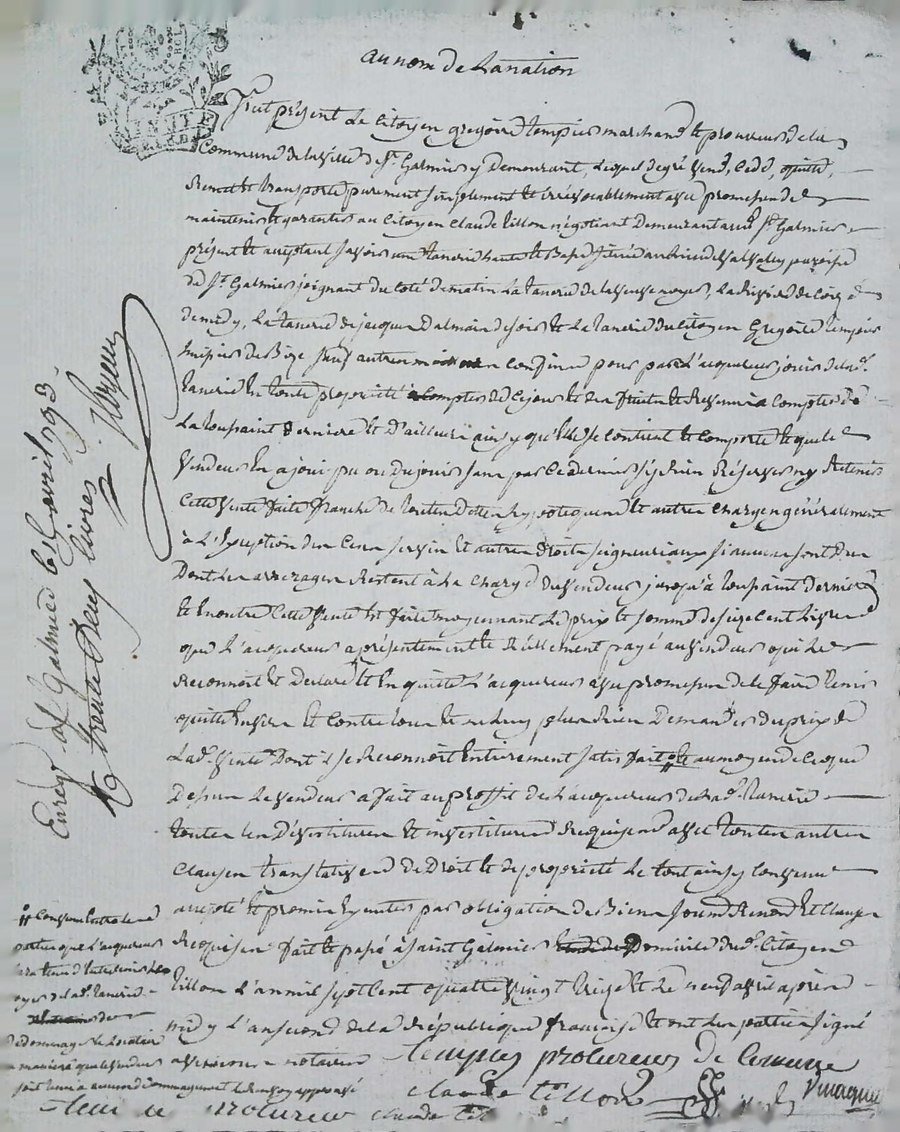 au nom de La nation
fut présent Le Citoyen gregoire tempier marchand et procureur de la
Commune de la ville de St. Galmier y Demeurant, Lequel de gré vend, Cede, quitte,
Remet et transporte purement simplement et irrévocablement avec promesse de
maintenir et garantir au Citoyen Claude tillon négotiant Demeurant aud. St. Galmier
présent et acceptant savoir une tanerie haute et Basse située au
de St. Galmier joignant du Coté de matin La tanerie de la veuve, La Rivière de Coize de
de midy, La tanerie de jacques Dalmain de soir et La tanerie du Citoyen Gregoire tempier
de Bize sauf autres confins pour par L'acquereur jouir de lad.
tanerie En toute propriété à Compter de Ce jour et des fruits et Revenus à Compter de
La toussaint Derniere et D'ailleurs ainsy qu'elle se Contient et Comporte et que le
vendeur En a joui pu ou Du jouir sans par Ce dernier s'y Rien Réserver ny Retenir
Cette vente faite franche de toutes Dettes hypoteques et autres Charges généralement
à L'Exception des Cens servis et autres Droits seigneuriaux si aucuns sont Dus
Dont Les arrerages Restent à La Charge du vendeur jusqu'à toussaint Dernier
et En outre Cette vente Est faite moyennant Le prix et somme de seize Cent Livres
que L'acquereur a présentement et Réellement payé au vendeur qui Le
Reconnoit et Declare et En quitte L'acquereur avec promesse de le faire tenir
quitte Envers et Contre tous et ne luy plus Rien Demander du prix de
Lad. vente Dont il se Reconnoit Entierement satisfait et au moyen de Ce que
Dessus Le vendeur a fait au proffit de L'acquereur de Lad. tanerie
toutes Les Devestitures et investitures Requises avec toutes autres
Clauses translatives de Droit et de propriété Le tout ainsy Convenu
accepté et promis Executer par obligation de Biens soumis Renonc. et Clauses
Requises fait et passé à Saint Galmier Domicile dud. Citoyen
tillon L'an mil sept Cent quatre vingt treize et Le neuf avril après
midy L'an second de la République francaise et ont Les parties signé
avec nous notaire tempier procureur de Comune
Claude tillon
Enregé. à St. Galmier le 15 avril 1793.
Rç trente Deux livres
# Convenu Entre Les
parties que L'acquereur
sera tenu d'Entretenir Les
de lad. tanerie
Dedommager Le Locataire
de maniere que Le vendeur
soit tenu à aucun Dommagement Le Renvoy approuvé
procureur Claude